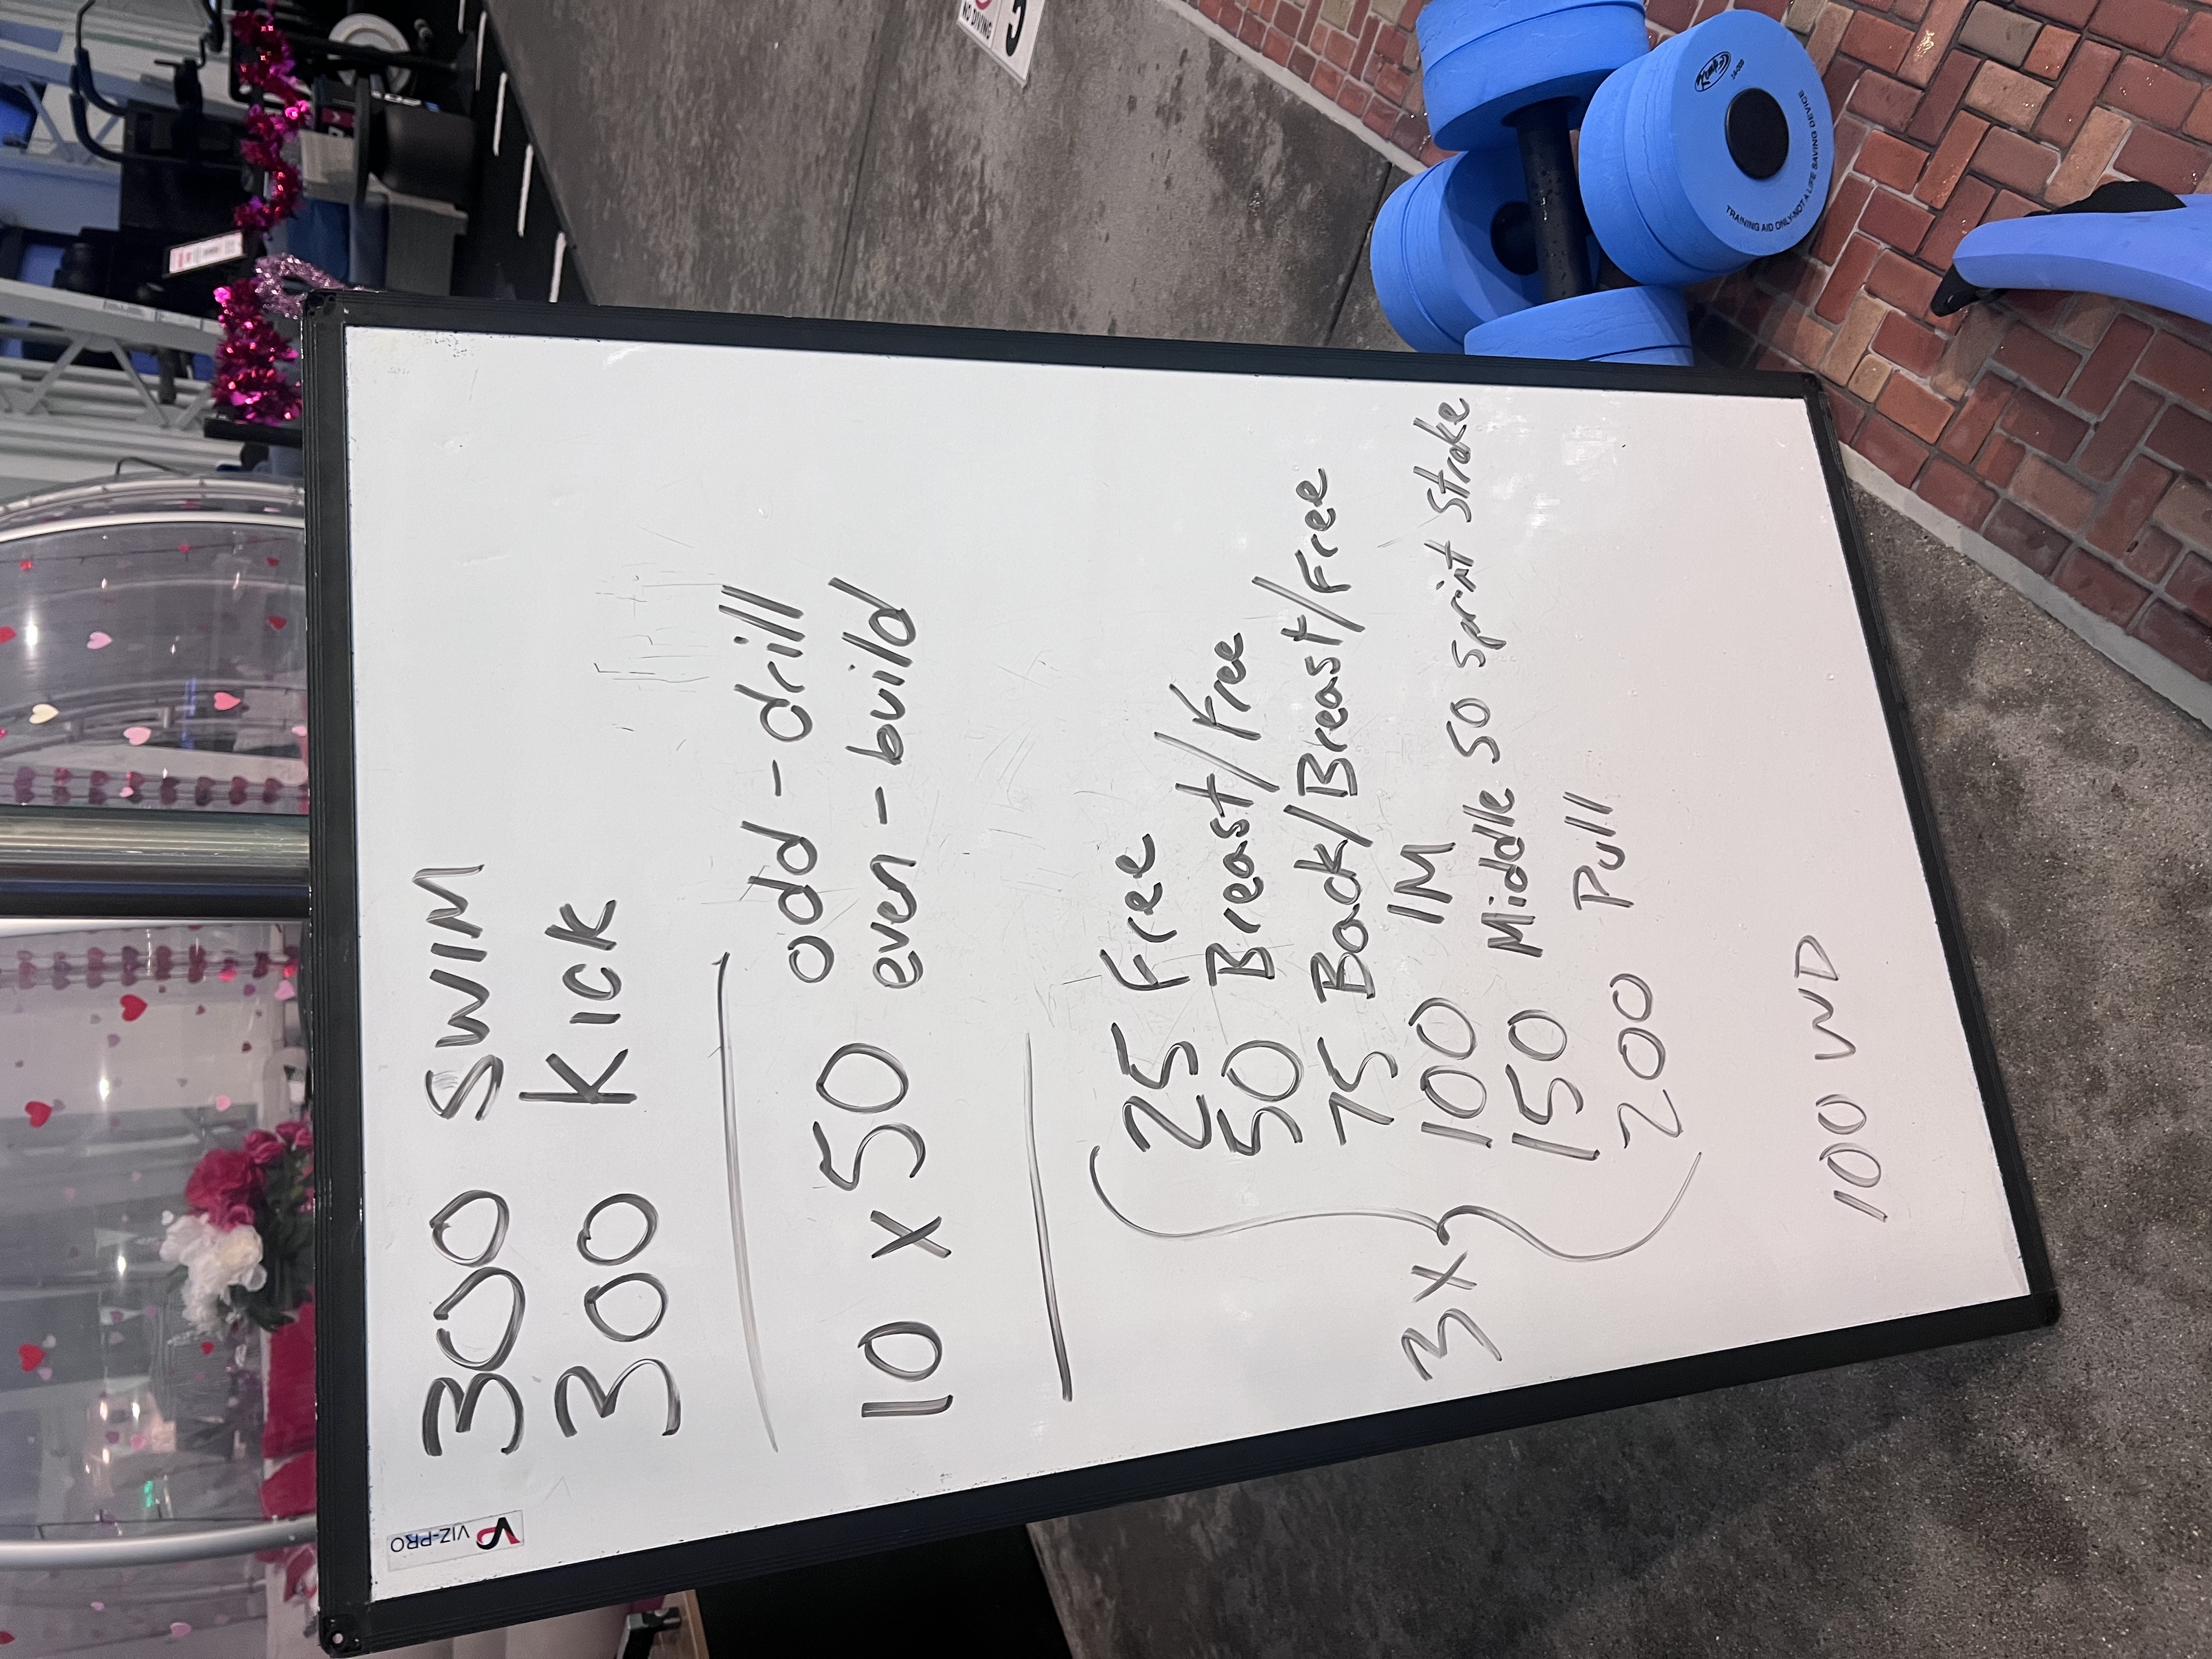 300 SWIM
300 KICK
10 x 50 odd - drill
even - build
3x { 25 Free
50 Breast/Free
75 Back/Breast/Free
100 IM
150 Middle 50 sprint stroke
200 Pull
100 WD
VIZ-PRO
NO DIVING
5
TRAINING AID ONLY-NOT A LIFE SAVING DEVICE